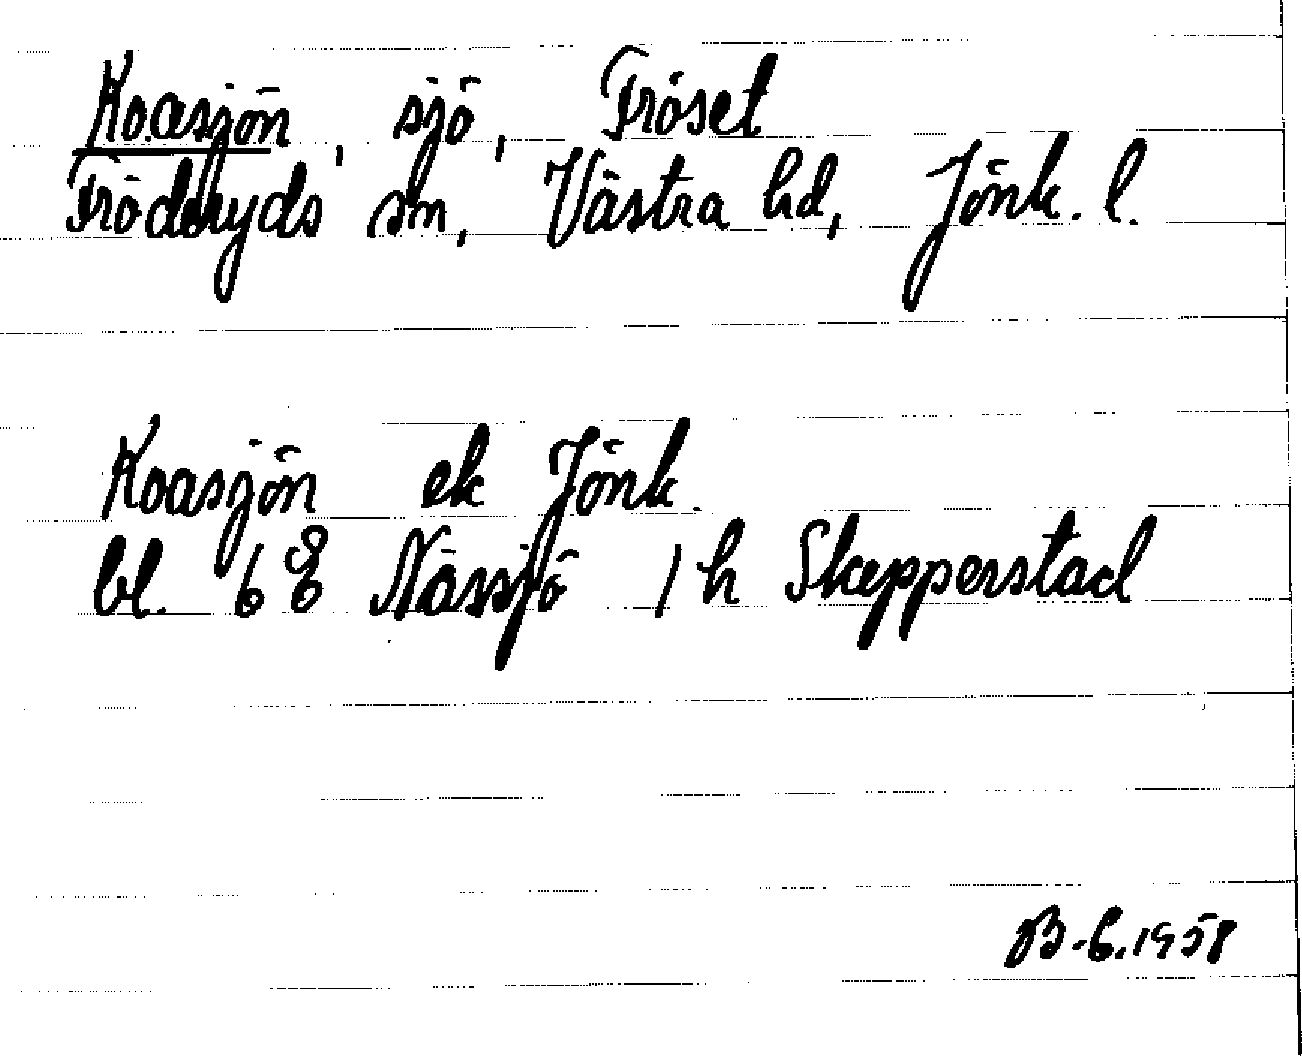 Koasjön, sjö, Fröset
Fröderyds sn, Västra hd, Jönk. l.
Koasjön ek Jönk.
bl. 6 E Nässjö 1 h Skepperstad
B-6.1958